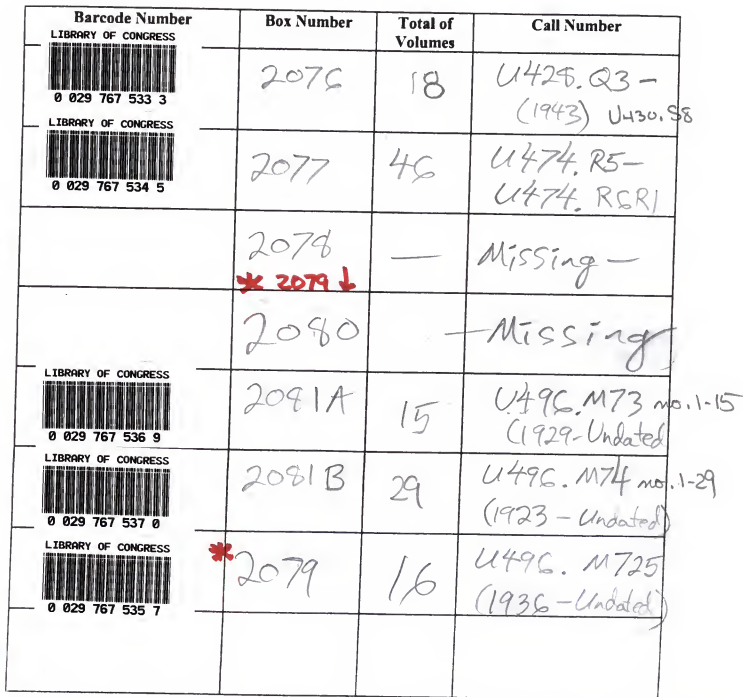 Barcode Number Box Number Total of Volumes Call Number
LIBRARY OF CONGRESS
0 029 767 533 3
2076 18 U428.Q3 –
(1943) U430.S8
LIBRARY OF CONGRESS
0 029 767 534 5
2077 46 U474. R5–
U474. R6R1
2078 — Missing —
* 2079 ↓
2080 — Missing
LIBRARY OF CONGRESS
0 029 767 536 9
2081A 15 U496.M73 no. 1-15
(1929-Undated
LIBRARY OF CONGRESS
0 029 767 537 0
2081B 29 U496. M74 no. 1-29
(1923 – Undated)
LIBRARY OF CONGRESS
0 029 767 535 7
* 2079 16 U496. M725
(1936 – Undated)